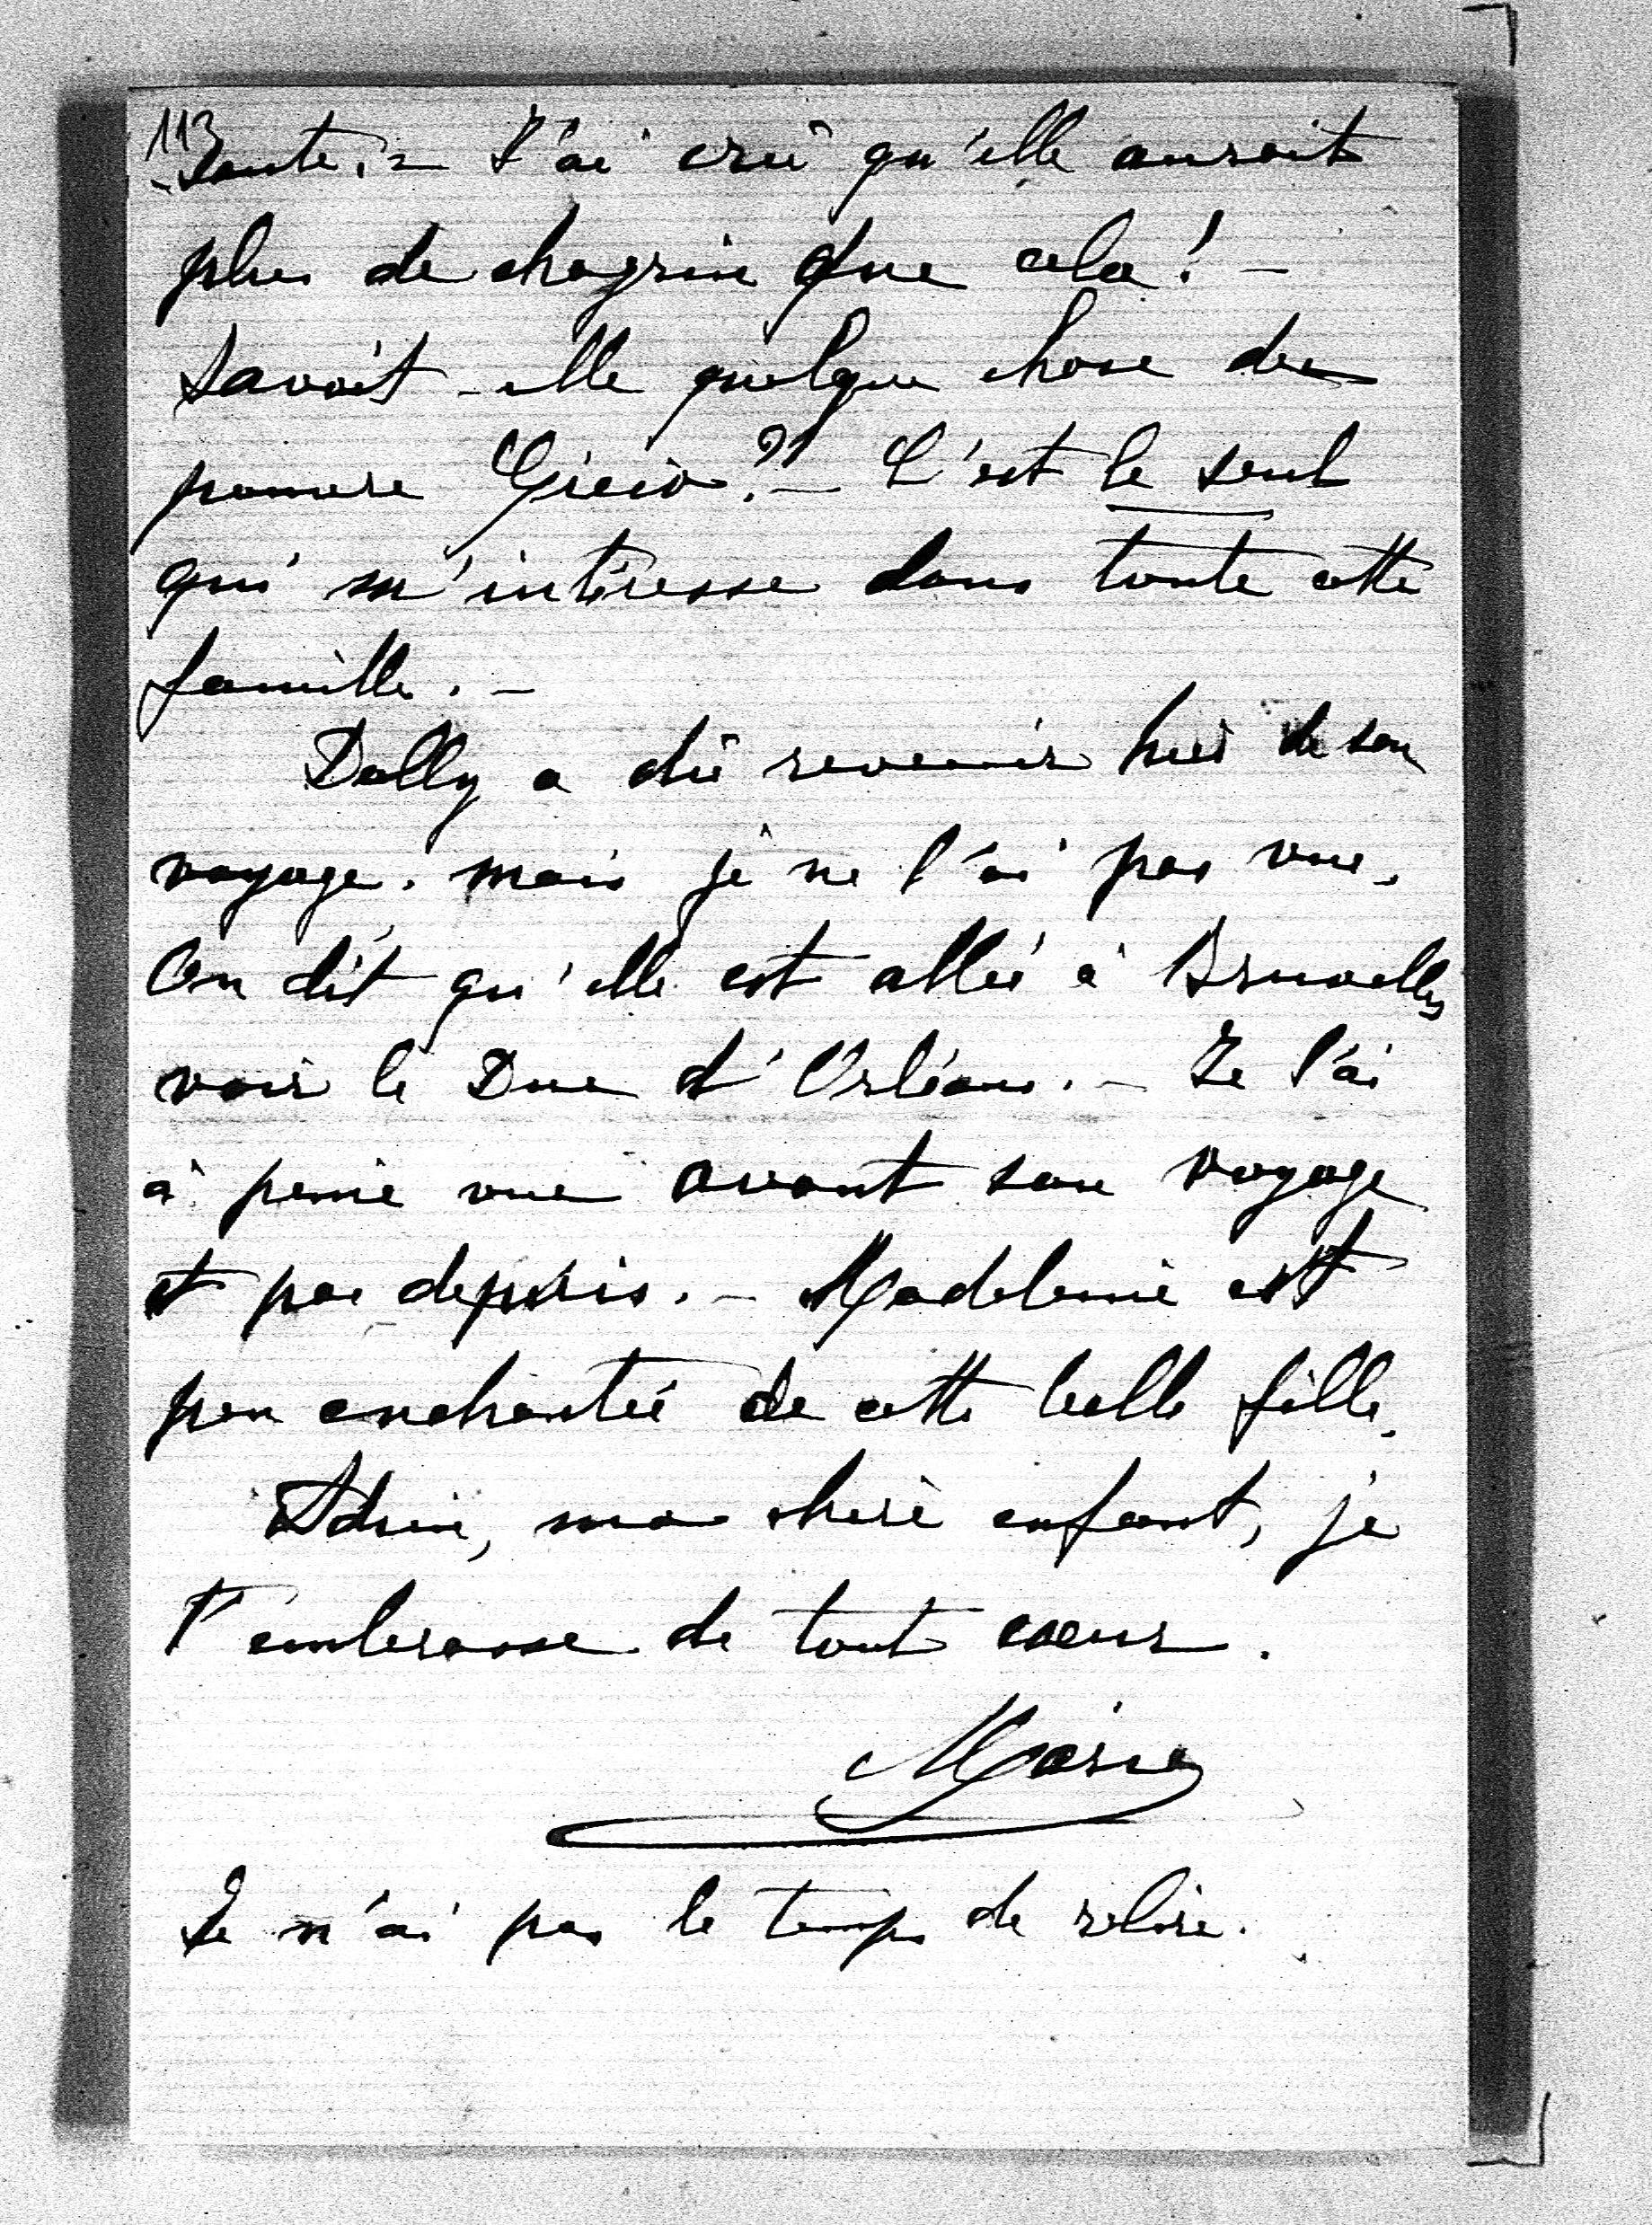 113
J'ai cru qu'elle aurait
plus de chagrin que cela! –
Savait-elle quelque chose du
pauvre ?! – C'est le seul
qui m'intéresse dans toute cette
famille. –
Dolly a dû revenir hier de son
voyage. mais je ne l'ai pas vue.
On dit qu'elle est allée à Bruxelles
voir le Duc d'Orléans. – Je l'ai
à peine vue avant son voyage
et pas depuis. – Madeleine est
peu enchantée de cette belle fille.
Adieu, ma chère enfant, je
t'embrasse de tout cœur.
Marie
Je n'ai pas le temps de relire.